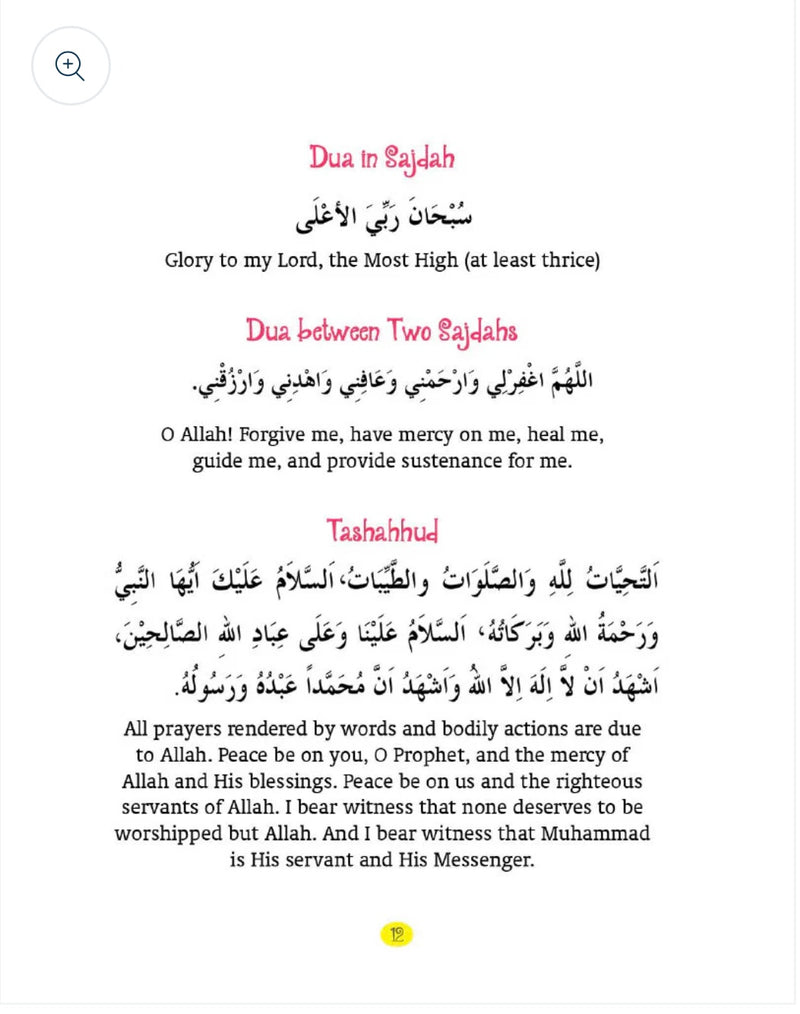 Dua in Sajdah
سُبْحَانَ رَبِّيَ الأَعْلَى
Glory to my Lord, the Most High (at least thrice)
Dua between Two Sajdahs
اللَّهُمَّ اغْفِرْلِي وَارْحَمْنِي وَعَافِنِي وَاهْدِنِي وَارْزُقْنِي.
O Allah! Forgive me, have mercy on me, heal me,
guide me, and provide sustenance for me.
Tashahhud
اَلتَّحِيَّاتُ لِلَّهِ وَالصَّلَوَاتُ والطَّيِّبَاتُ، اَلسَّلاَمُ عَلَيْكَ اَيُّهَا النَّبِيُّ
وَرَحْمَةُ اللهِ وَبَرَكَاتُهُ، اَلسَّلاَمُ عَلَيْنَا وَعَلَى عِبَادِ اللهِ الصَّالِحِيْنَ،
اَشْهَدُ اَنْ لاَّ اِلَهَ اِلاَّ اللهُ وَاَشْهَدُ اَنَّ مُحَمَّداً عَبْدُهُ وَرَسُولُهُ.
All prayers rendered by words and bodily actions are due
to Allah. Peace be on you, O Prophet, and the mercy of
Allah and His blessings. Peace be on us and the righteous
servants of Allah. I bear witness that none deserves to be
worshipped but Allah. And I bear witness that Muhammad
is His servant and His Messenger.
12